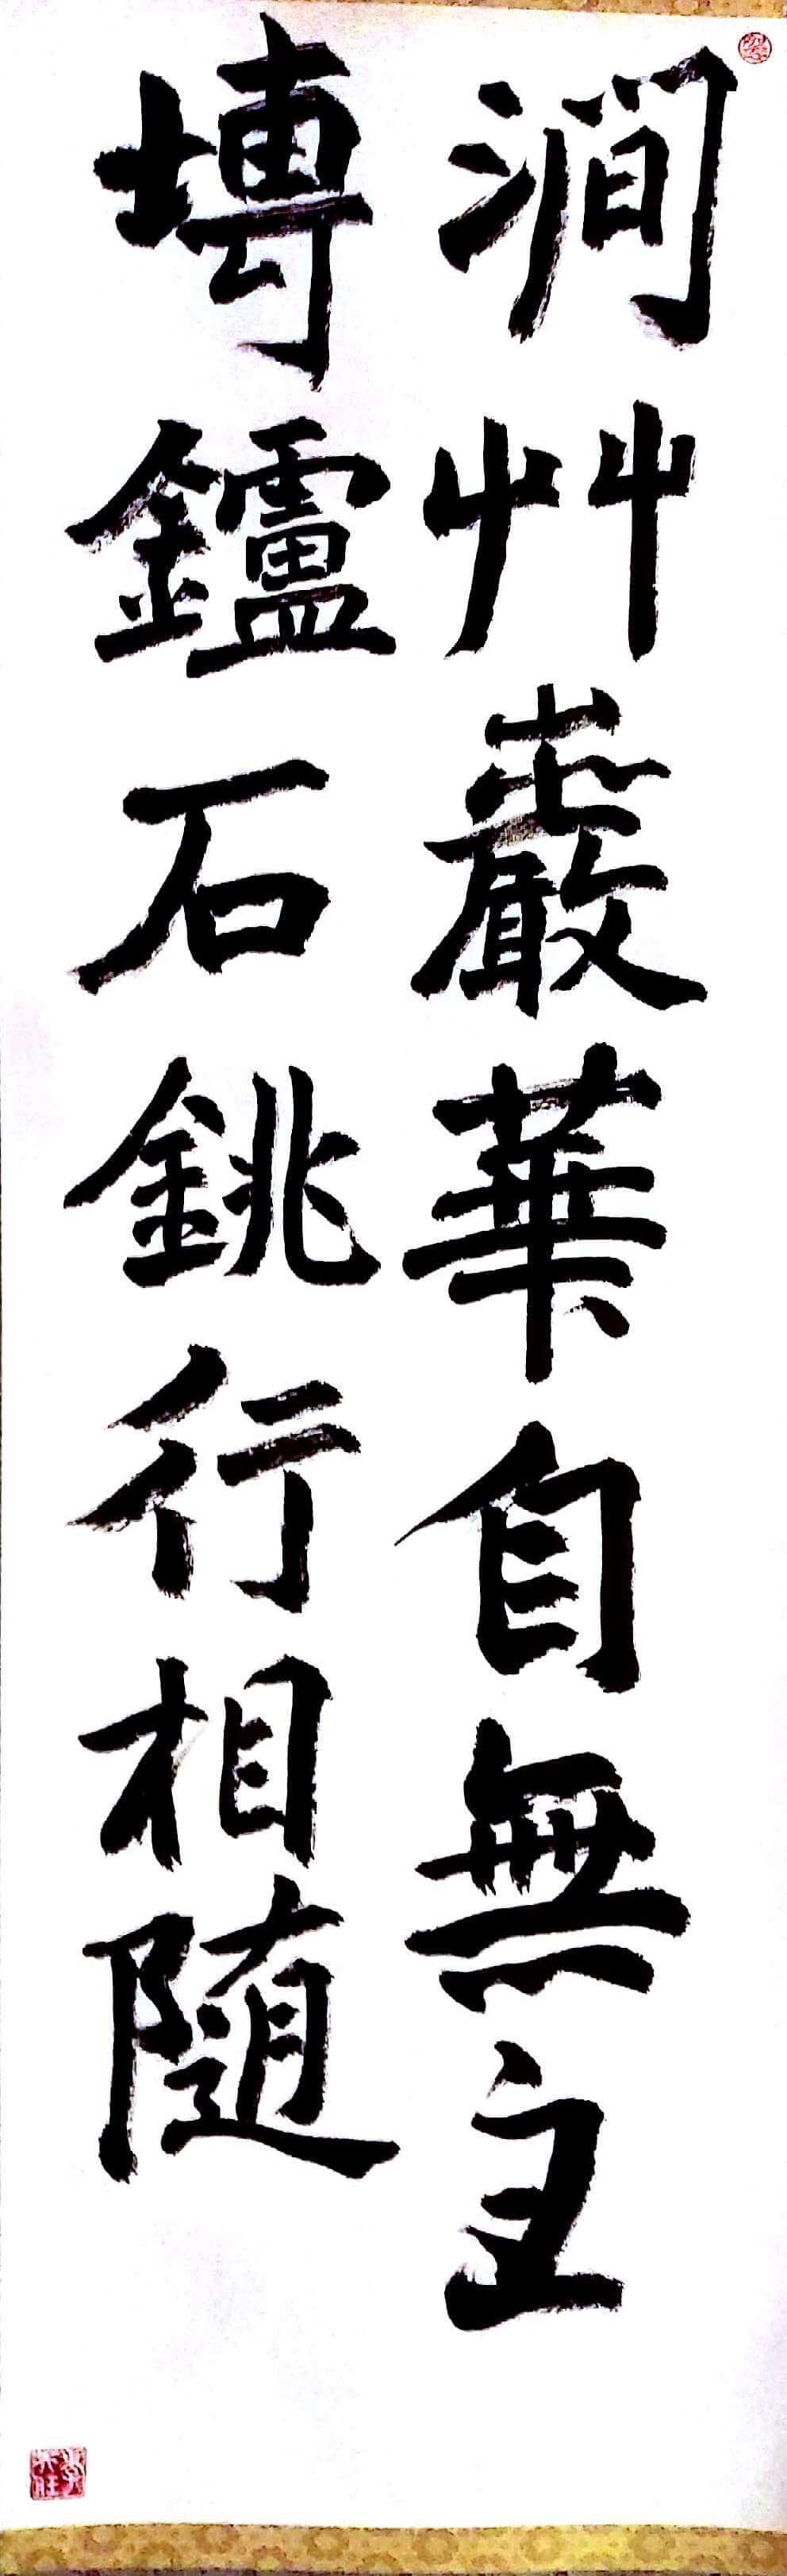 澗艸巖華自無主
塼鑪石銚行相随